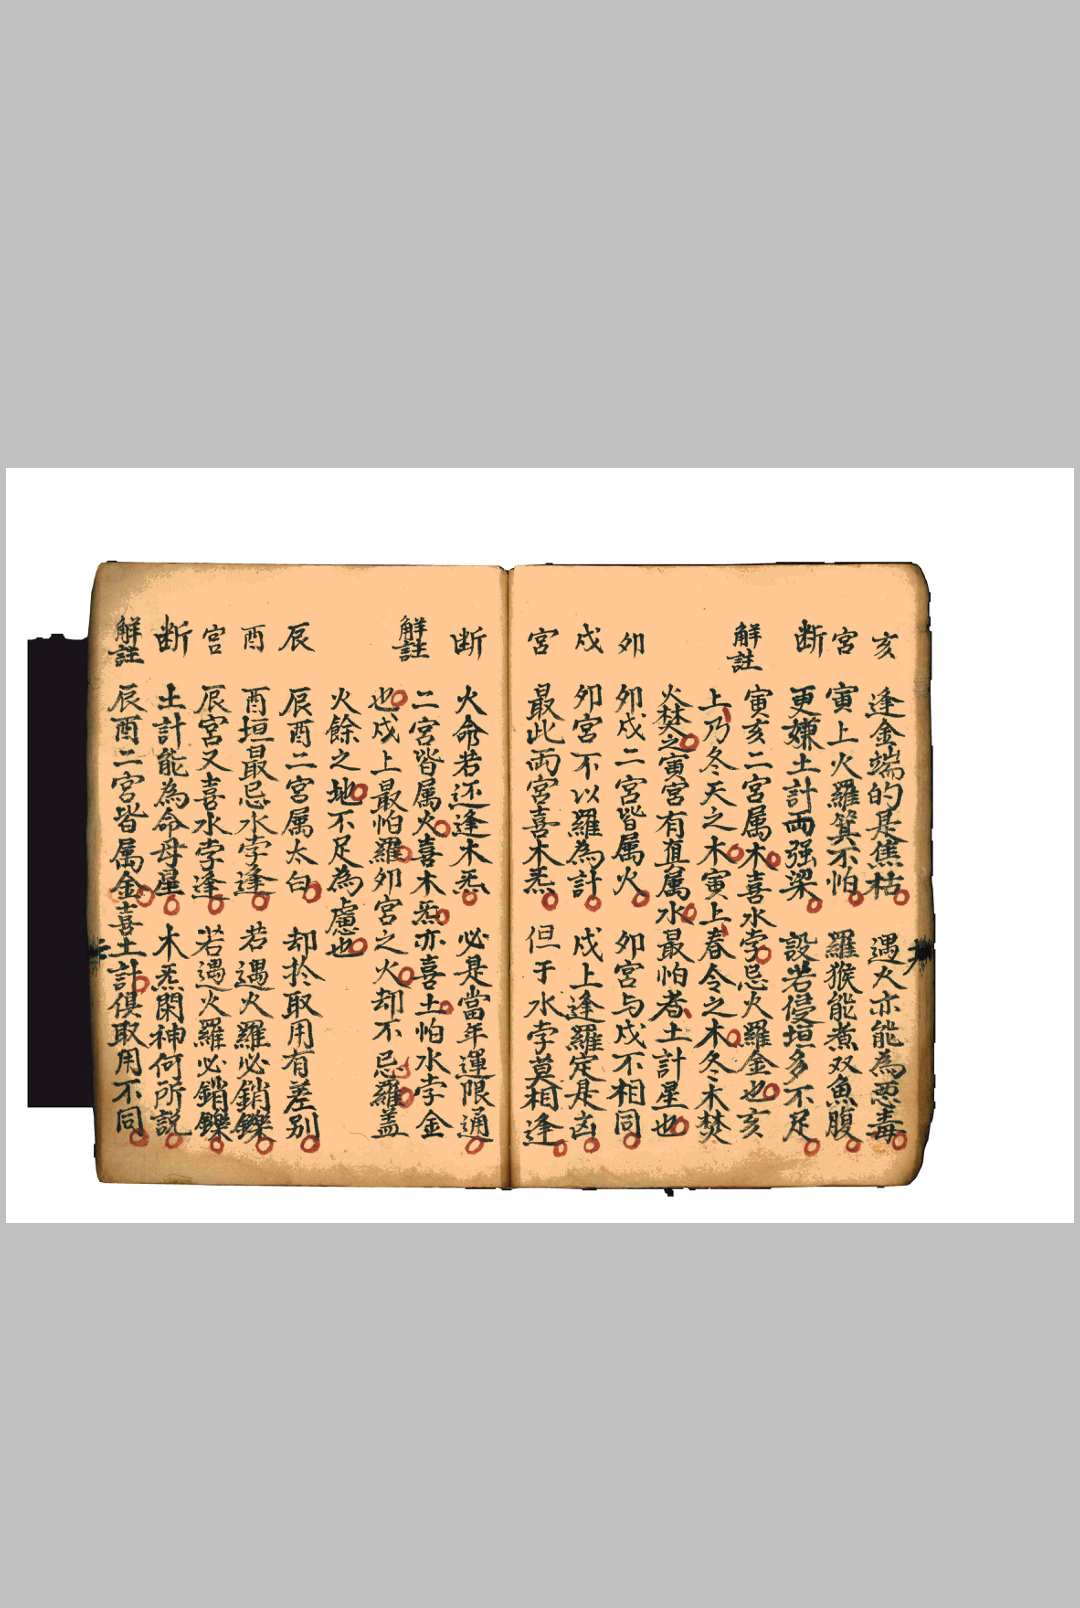 亥 逢金端的是焦枯 遇火亦能為惡毒
宮 寅上火羅箕不怕 羅猴能煮双魚腹
断 更嫌土計両强梁 設若侵垣多不足
解註 寅亥二宮属木喜水孛忌火羅金也亥
上乃冬天之木寅上春令之木冬木焚
火焚之寅宮有直属水最怕者土計星也
卯 卯戌二宮皆属火 卯宮与戌不相同
戌 卯宮不以羅為計 戌上逢羅定是凶
宮 最此両宮喜木炁 但于水孛莫相逢
断 火命若还逢木炁 必是當年運限通
解註 二宮皆属火喜木炁亦喜土怕水孛金
也戌上最怕羅卯宮之火却不忌羅盖
火餘之地不足為慮也
辰 辰酉二宮属太白 却扵取用有差别
酉 酉垣最忌水孛逢 若遇火羅必銷鑠
宮 辰宮又喜水孛逢 若遇火羅必銷鑠
断 土計能為命母星 木炁閑神何所説
解註 辰酉二宮皆属金喜土計俱取用不同